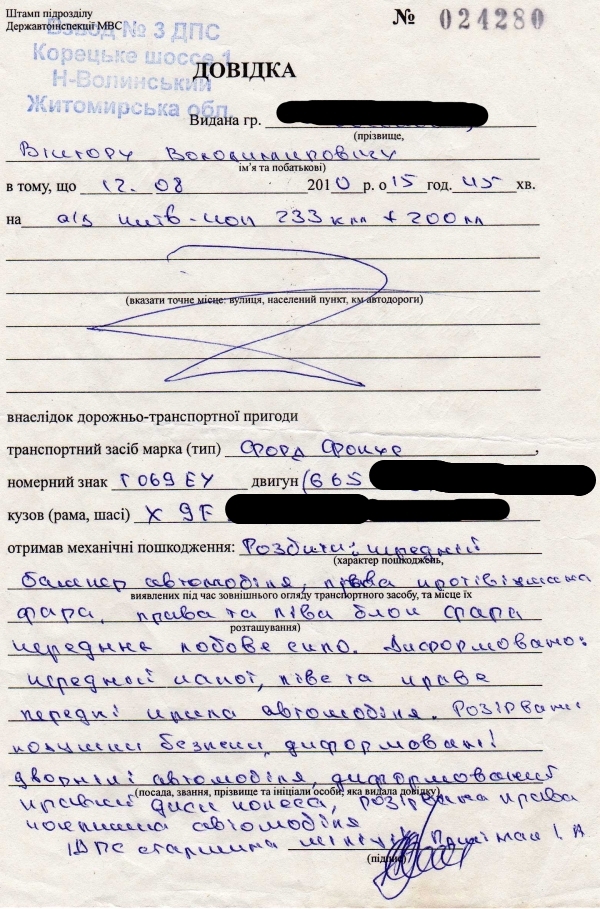 Штамп підрозділу
Державтоінспекції МВС
№ 024280
Взвод № 3 ДПС
Корецьке шоссе 1
Н-Волинський
Житомирська обл.
ДОВІДКА
Видана гр.
(прізвище,
Віктору Володимировичу
ім’я та побатькові)
в тому, що 12. 08 2010 р. о 15 год. 45 хв.
на а/д київ-чоп 233 км + 200 м
(вказати точне місце: вулиця, населений пункт, км автодороги)
внаслідок дорожньо-транспортної пригоди
транспортний засіб марка (тип) Форд Фокус,
номерний знак Т069ЕУ двигун (665
кузов (рама, шасі) Х 9F
отримав механічні пошкодження: Розбиті: передній
(характер пошкоджень,
бампер автомобіля, права протівтуманна
виявлених під час зовнішнього огляду транспортного засобу, та місце їх
фара, права та ліва блок фара
розташування)
переднє лобове скло. Диформовано:
передній капот, ліве та праве
передні крила автомобіля. Розірвані
подушки безпеки, диформовані
дворнікі автомобіля, диформований
(посада, звання, прізвище та ініціали особи, яка видала довідку)
правий диск колеса, розірвана права
покришка автомобіля
ІДПС старшина міліції
(підпис)